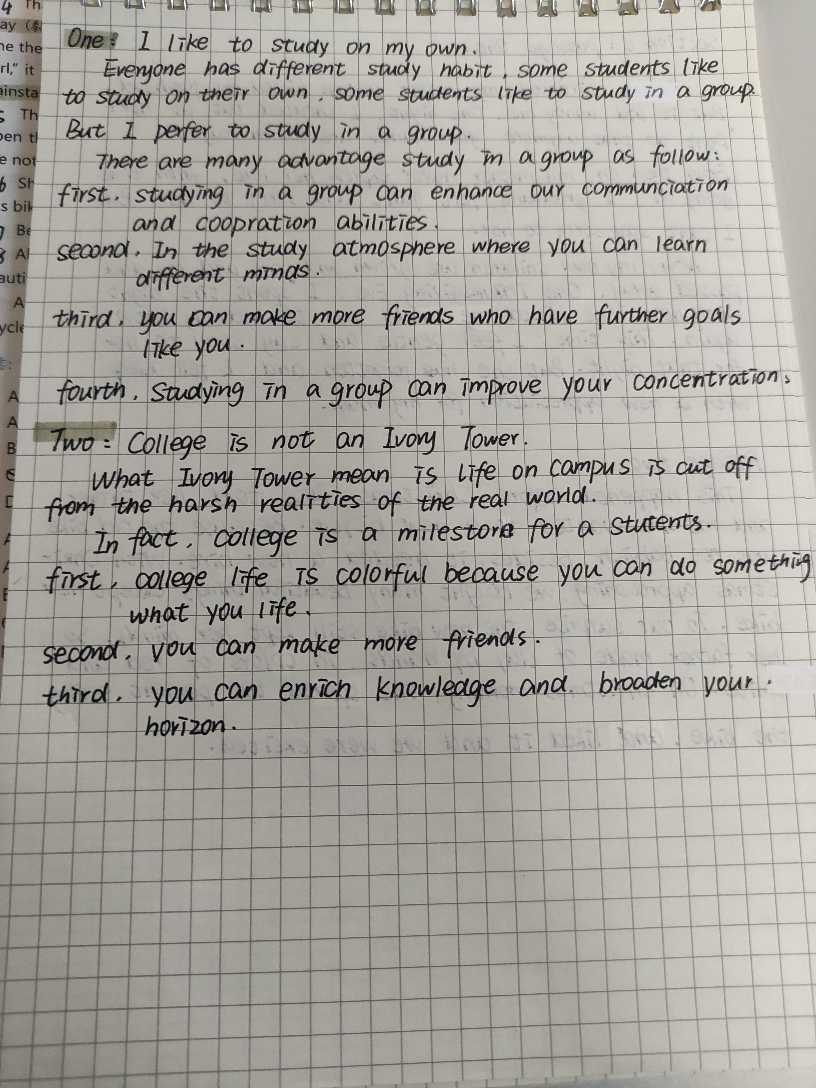 4 Th
ay
ne the
rl," it
ainsta
5 Th
pen t
e not
6 Sh
s bik
7 Be
8 Al
auti
A
ycle
A
A
B
C
D
One: I like to study on my own.
Everyone has different study habit, some students like
to study on their own, some students like to study in a group.
But I perfer to study in a group.
There are many advantage study in a group as follow:
first, studying in a group can enhance our communciation
and coopration abilities.
second, In the study atmosphere where you can learn
different minds.
third, you can make more friends who have further goals
like you.
fourth, studying in a group can improve your concentration.
Two: College is not an Ivory Tower.
What Ivory Tower mean is life on campus is cut off
from the harsh realities of the real world.
In fact, college is a milestore for a stutents.
first, college life is colorful because you can do something
what you life.
second, you can make more friends.
third, you can enrich knowledge and broaden your.
horizon.